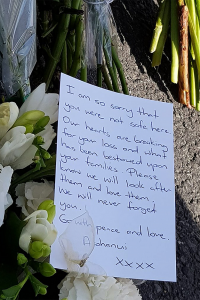 I am so sorry that
you were not safe here
Our hearts are breaking
for your loss and what
has been bestowed upon
your families. Please
know we will look after
them and love them.
We will never forget
you.
peace and love.
xxxx